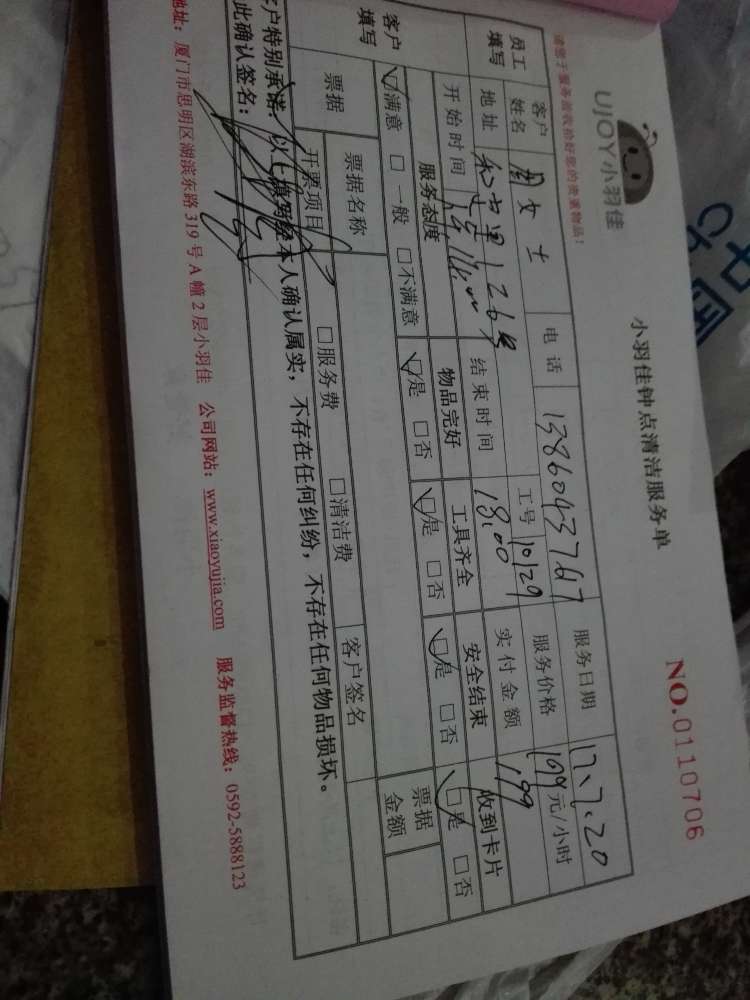 UJOY小羽佳
小羽佳钟点清洁服务单
NO.0110706
请您于服务前收拾好您的贵重物品！
员工填写 客户姓名 周女士 电话 13860437617 服务日期 17.7.20
地址 126号 工号 10129 服务价格 199元/小时
开始时间 结束时间 18:00 实付金额 199
客户填写 服务态度 物品完好 工具齐全 安全结束 收到卡片
☑满意 □一般 □不满意 ☑是 □否 ☑是 □否 ☑是 □否 ☑是 □否
票据 票据名称 客户签名 票据金额
开票项目 □服务费 □清洁费
客户特别承诺：以上填写经本人确认属实，不存在任何纠纷，不存在任何物品损坏。
此确认签名：
地址：厦门市思明区湖滨东路319号A幢2层小羽佳 公司网站：www.xiaoyujia.com 服务监督热线：0592-5888123